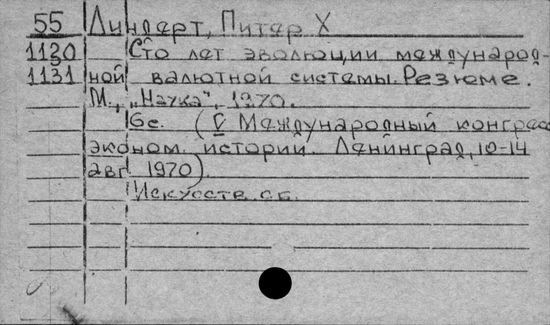 55 Линдерт, Питер Х
1130 Сто лет эволюции международ-
1131 ной валютной системы. Резюме.
М., „Наука", 1970.
6с. (V Международный конгресс
эконом. истории. Ленинград, 10-14
авг. 1970).
Искусств. сб.